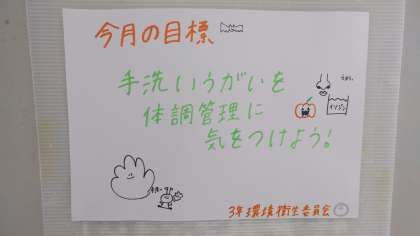 今月の目標
手洗いうがいを
体調管理に
気をつけよう!
イソジン
3年環境衛生委員会